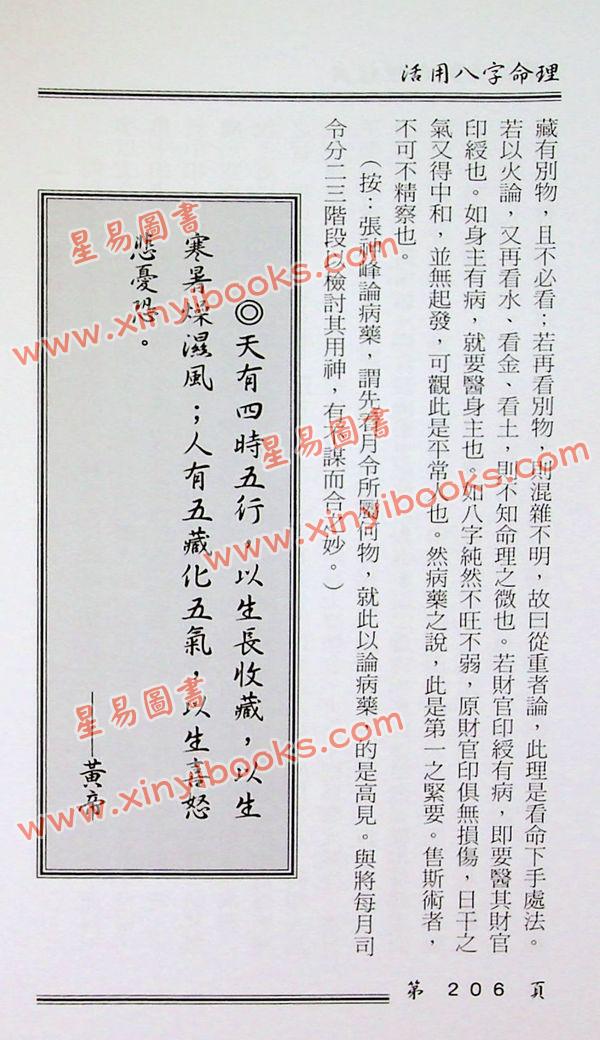 活用八字命理
藏有別物，且不必看；若再看別物，則混雜不明，故曰從重者論，此理是看命下手處法。
若以火論，又再看水、看金、看土，則不知命理之微也。若財官印綬有病，即要醫其財官
印綬也。如身主有病，就要醫身主也。如八字純然不旺不弱，原財官印俱無損傷，日干之
氣又得中和，並無起發，可觀此是平常人也。然病藥之說，此是第一之緊要。售斯術者，
不可不精察也。
（按：張神峰論病藥，謂先看月令所屬何物，就此以論病藥，的是高見。與將每月司
令分二三階段以檢討其用神，有不謀而合之妙。）
◎天有四時五行，以生長收藏，以生
寒暑燥濕風；人有五藏化五氣，以生喜怒
悲憂恐。
——黃帝
第 206 頁
星易圖書
www.xinyibooks.com
星易圖書
www.xinyibooks.com
星易圖書
www.xinyibooks.com